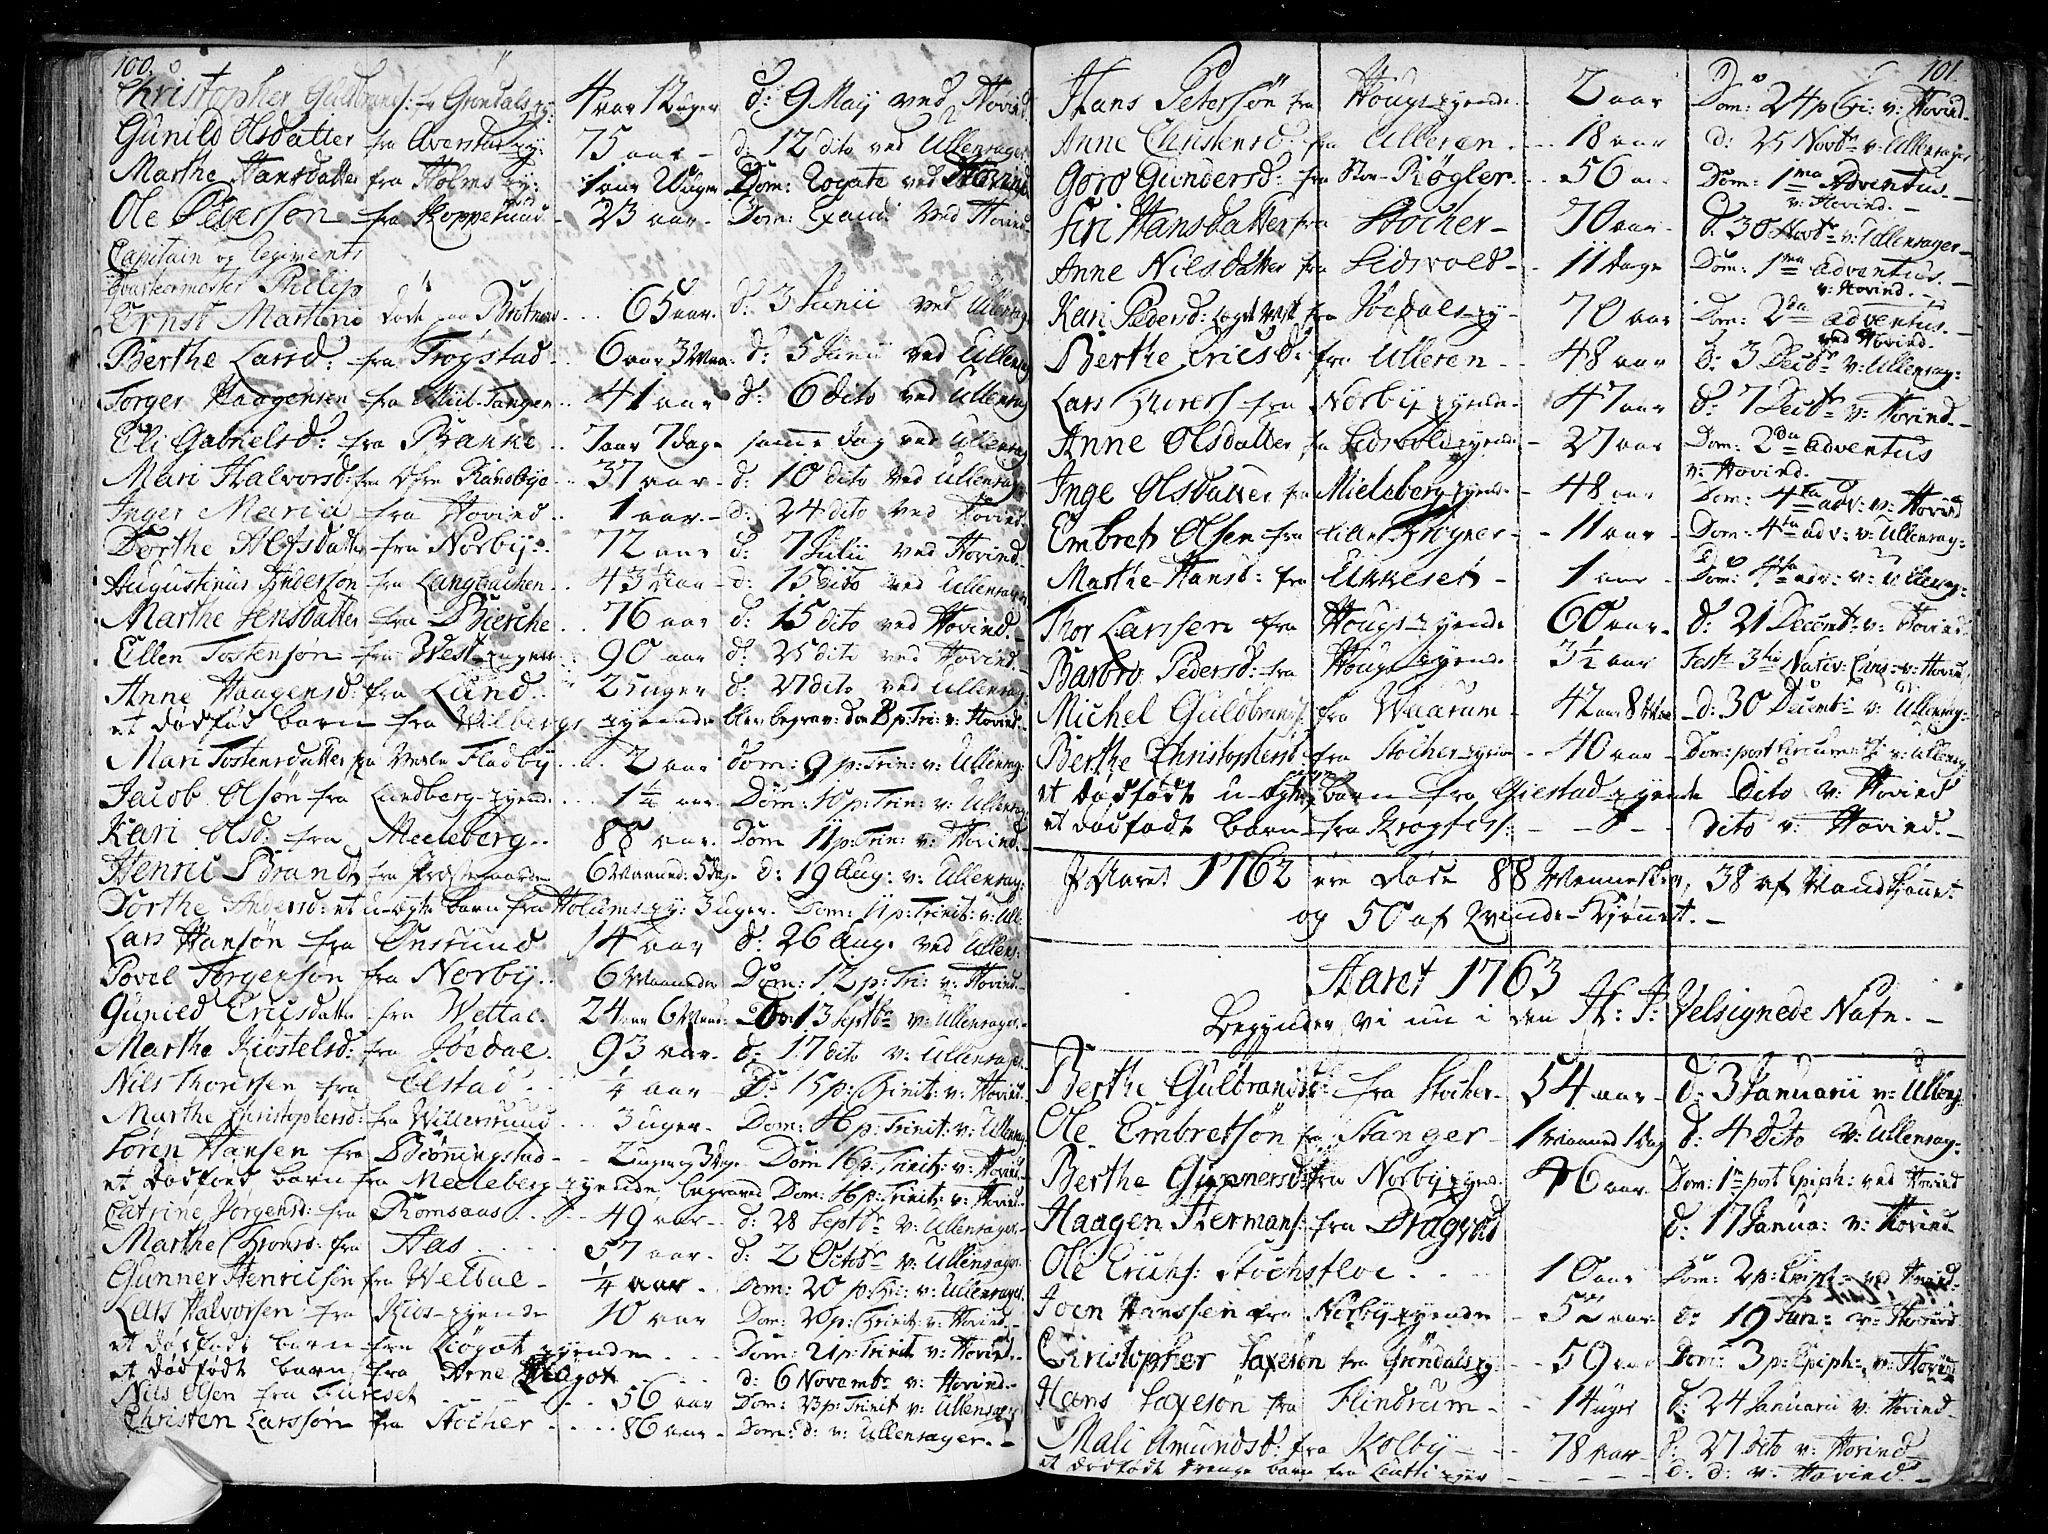 100.
Christopher Guldbrands: fr Grøndals ey: 4 aar 12 uger d: 9 May ved Hovind.
Gunild Olsdatter fra Averstad ey: 75 aar - d: 12 dito ved Ullensager
Marthe Hansdatter fra Holms ey: 1 aar uger Dom: Rogate ved Hovind
Ole Pederson fra Koppelund - 23 aar - Dom: Exaudi ved Hovind
Capitain og Regiments
Qvarteermester Philip
Ernst Martini døde paa Brotnu ... 65 aar. d: 3 Junii ved Ullensag
Berthe Larsd: fra Trøgstad - 6 aar 3 Maa: d: 5 Junii ved Ullensag
Torger Haagensen fra Tangen .. 41 aar d: 6 dito ved Ullensag
Eli Gabrielsd: fra Branke .. 7 aar 7 dage samme dag ved Ullensag
Mari Halvorsd: fra Øfre Randbye .. 37 aar - d: 10 dito ved Ullensag
Inger Maria fra Hovind .. 1 aar. - d: 24 dito ved Hovind.
Dorthe Alfsdatter fra Norby .. 72 aar d: 7 Julii ved Hovind.
Augustinus Anderson fra Langbachen .. 43 aar - d: 15 dito ved Ullensager
Marthe Jensdatter fra Bierche .. 76 aar d: 15 dito ved Hovind.
Ellen Tostensøn fra West .. 90 aar d: 25 dito ved Hovind.
Anne Haagensd: fra Lund .. 2 uger d: 27 dito ved Ullensag:
et dødfød barn fra Wilbergs eyende blev begrav: dom 8 p: Tri: v: Hovind.
Mari Tostensdatter fra Vesle Fladby .. 2 aar dom: 9 p: Trin: v: Ullensag:
Jacob Olsøn fra Lundberg-eyend: ... 1 1/4 aar. Dom: 10 p: Trin: v: Ullensag
Kari Olsd: fra Meeleberg .. 88 aar. Dom 11 p: Trin: v: Hovind.
Henric Brandt fra Præstegaarden 6 Maaned: 5 dage d: 19 Aug: v: Ullensag:
Dorthe Andersd: et u-ægte barn fra Holums ey: 3 uger. Dom: 11 p: Trinit: v: Ulle
Lars Hansøn fra Onsrund 14 aar d: 26 Aug: ved Ullens:
Povel Torgerson fra Norby .. 6 Maaneder Dom: 12 p: Tri: v: Hovind.
Gunild Ericsdatter fra Wettal. 24 aar 6 Maan: 13 Septbr v: Ullensager.
Marthe Kiøstelsd: fra Jødal. 93 aar. d: 17 dito v: Ullensager.
Nils Thoresen fra Elstad .. 1/4 aar - D: 15 p: Trinit: v: Hovind.
Marthe Christophersd: fra Willersrund ... 3 uger. Dom: 16 p: Trinit: v: Ullensag
Søren Hansen fra Bonningstad .. 2 uger og 3 dage Dom 16 p: Trinit: v: Hovind
et dødfød barn fra Meeleberg-eyende, begraved Dom: 16 p: Trinit: v: Hovind.
Catrine Jørgensd: fra Romsaas .. 49 aar - d: 28 Septbr v: Ullensager.
Marthe Tronsd: fra Aas ... 57 aar. d: 2 Octobr v: Ullensager.
Gunner Henricsøn fra Weldal - 1/4 aar Dom: 20 p: Tri: v: Ullensager.
Lars Halvorsen fra Kios-eyende 10 aar Dom: 20 p: Trinit: v: Hovind.
et dødfødt barn fra Kløgot eyende .. Dom: 21 p: Trinit v: Hovind.
et dødfødt barn fra Arne Kløgot .. d: 6 Novembr v: Hovind.
Nils Olsen fra Furuset ... 56 aar Dom: 23 p: Trinit v: Ullensager
Christen Larssøn fra Stocher ... 86 aar - Dom: d: v: Ullensager.
101.
Hans Petersøn fra Hougs-eyende. 2 aar Dom: 24 p: Tri: v: Hovind.
Anne Christensd: fra Ulleren. ... 18 aar d: 25 Novbr v: Ullensager
Goro Gundersd: fra Store Røgler .. 56 a. Dom: 1ma Adventus.
v: Hovind.
Siri Hansdatter fra Stocher - 70 aar - d. 30 Novbr v: Ullensager
Anne Nilsdatter fra Eidsvold .. 11 dage Dom: 1ma adventus.
v: Hovind.
Kari Pedersd: fra Jødals-ey - 70 aar Dom: 2da adventus.
ved Hovind.
Berthe Ericsd: fra Ulleren .. 48 aar d: 3 Decbr v: Ullensag:
Lars fra Norby eyende. 47 aar d: 7 Decbr v: Hovind.
Anne Olsdatter fra Eidsvold eyende. 27 aar Dom: 2da adventus
v: Hovind.
Inge Olsdatter fra Mieleberg eyende - 48 aar Dom: 4ta adv: v: Hovind
Embret Olsen fra Lille Frogner - - 11 aar - Dom: 4ta adv: v: Ullensag:
Marthe Hansd: fra Eikkeset - 1 aar - Dom: 4ta adv: v: Ullensag:
Thor Larssen fra Hougs-eyende 60 aar. d: 21 Decembr v: Hovind.
Barbro Pedersd: fra Hougs eyend: 3 1/2 aar Fest: 3tia Nativ: Chris: v: Hovind
Michel Guldbrands: fra Waarum - 42 aar 8 Maa - d: 30 Decembr v: Ullensag:
Berthe Christophersd: fra Stocher eyend - 40 aar - Dom: post Circum: v: Ullensag
et dødfødt u-ægte barn fra Gjestad-eyende Dito v: Hovind
et dødfødt barn fra Krogfos: - - - dito v: Hovind. -
I Aaret 1762 ere døde 88 Mennesker, 38 af Mandkiønnet
og 50 af Qvinde-Kiønnet. -
Aaret 1763
Begynder vi nu i den H: J: Velsignede Nafn. -
Berthe Gulbrandsd: fra Stocher - 54 aar - d: 3 Januarii v: Ullens:
Ole Embretsøn fra Stanger - 1 Maaned 1 dag d: 4 dito v: Ullensag:
Berthe Gunnersd: fra Norby eyend. 46 aar. Dom: 1ma post Epiph: ved Hovind
Haagen Hermans: fra Dragvad d: 17 Janua: v: Hovind.
Ole Erichs: Stochsfloe .... 10 aar Dom: 2 p: Epiph: ved Hovind.
Joen Hanssen fra Norby eyende - 52 aar d: 19 Jan: v: Hovind.
Christopher Saxesøn fra Grøndals ey: - 59 aar Dom: 3 p: Epiph: v: Hovind
Hans Saxesøn fra Flindrum - - 14 uger d: 24 Januarii v: Hovind.
Mali Amundsd: fra Kolby - - 78 aar d: 27 dito v: Hovind
et dødfødt drenge barn fra eyer - - - - d: d: v: Hovind. -